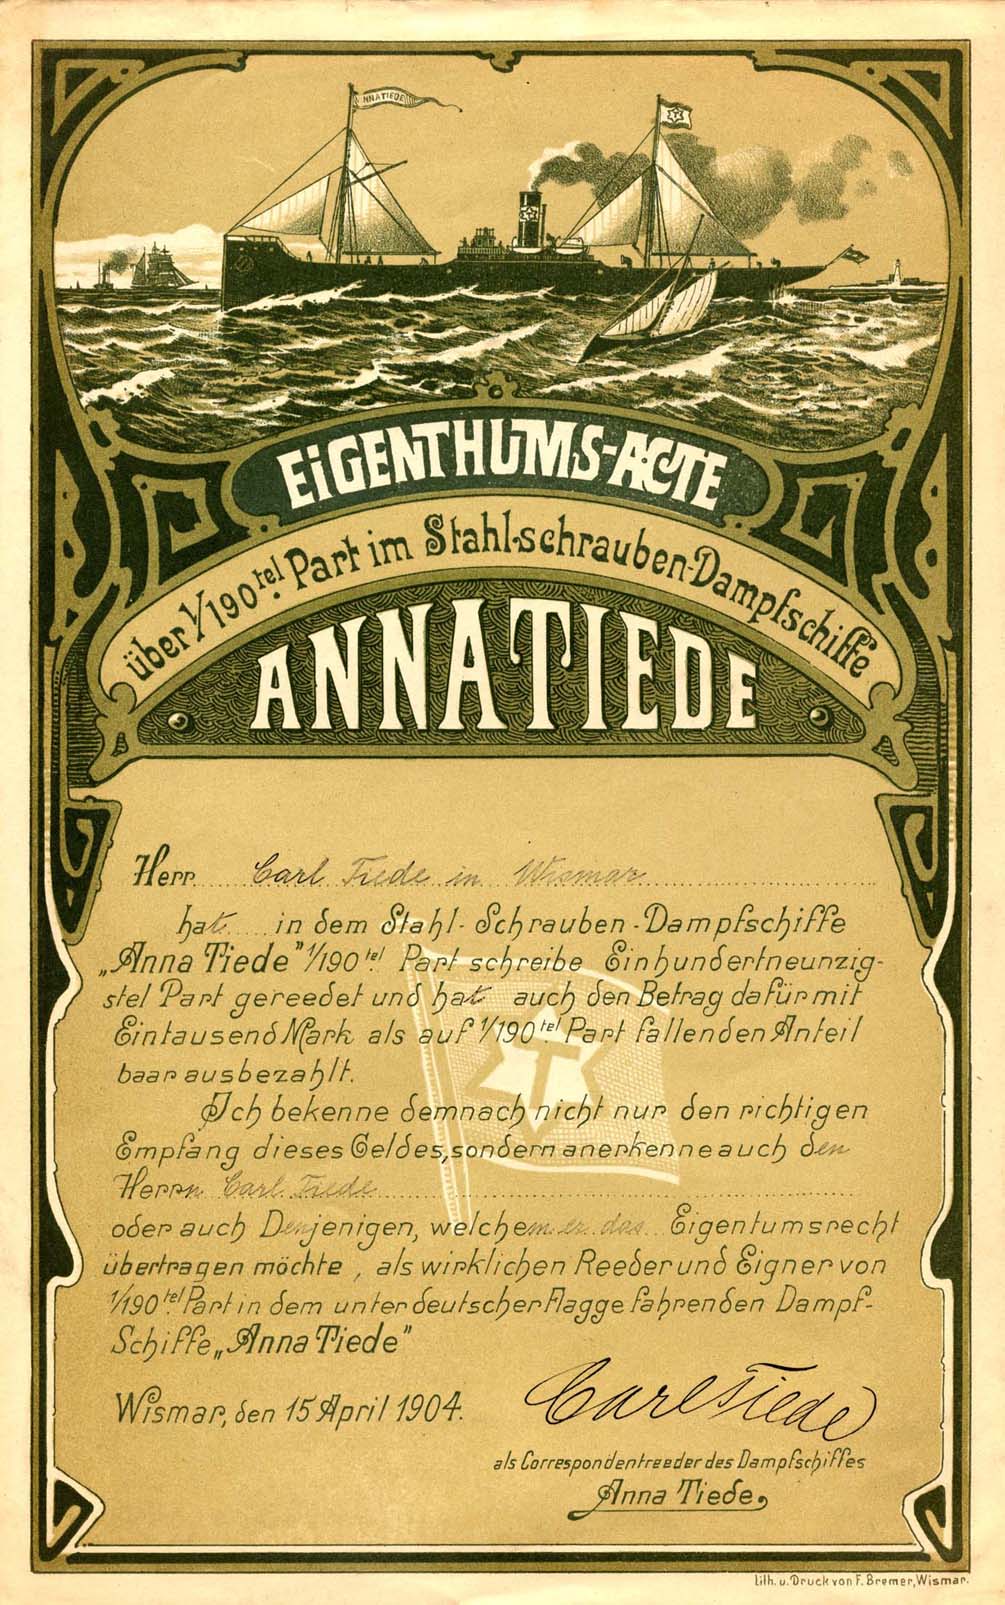 ANNA TIEDE
T
EIGENTHUMS-ACTE
über 1/190tel. Part im Stahl-schrauben-Dampfschiffe
ANNA TIEDE
Herr Carl Tiede in Wismar
hat in dem Stahl-Schrauben-Dampfschiffe
„Anna Tiede" 1/190tel. Part schreibe Einhundertneunzig-
stel Part gereedet und hat auch den Betrag dafür mit
Eintausend Mark als auf 1/190tel. Part fallenden Anteil
baar ausbezahlt.
Ich bekenne demnach nicht nur den richtigen
Empfang dieses Geldes, sondern anerkenne auch den
Herrn Carl Tiede
oder auch Denjenigen, welchem er das Eigentumsrecht
übertragen möchte, als wirklichen Reeder und Eigner von
1/190tel. Part in dem unter deutscher Flagge fahrenden Dampf-
Schiffe „Anna Tiede"
T
Wismar, den 15 April 1904.
Carl Tiede
als Correspondentreeder des Dampfschiffes
Anna Tiede.
Lith. u. Druck von F. Bremer, Wismar.